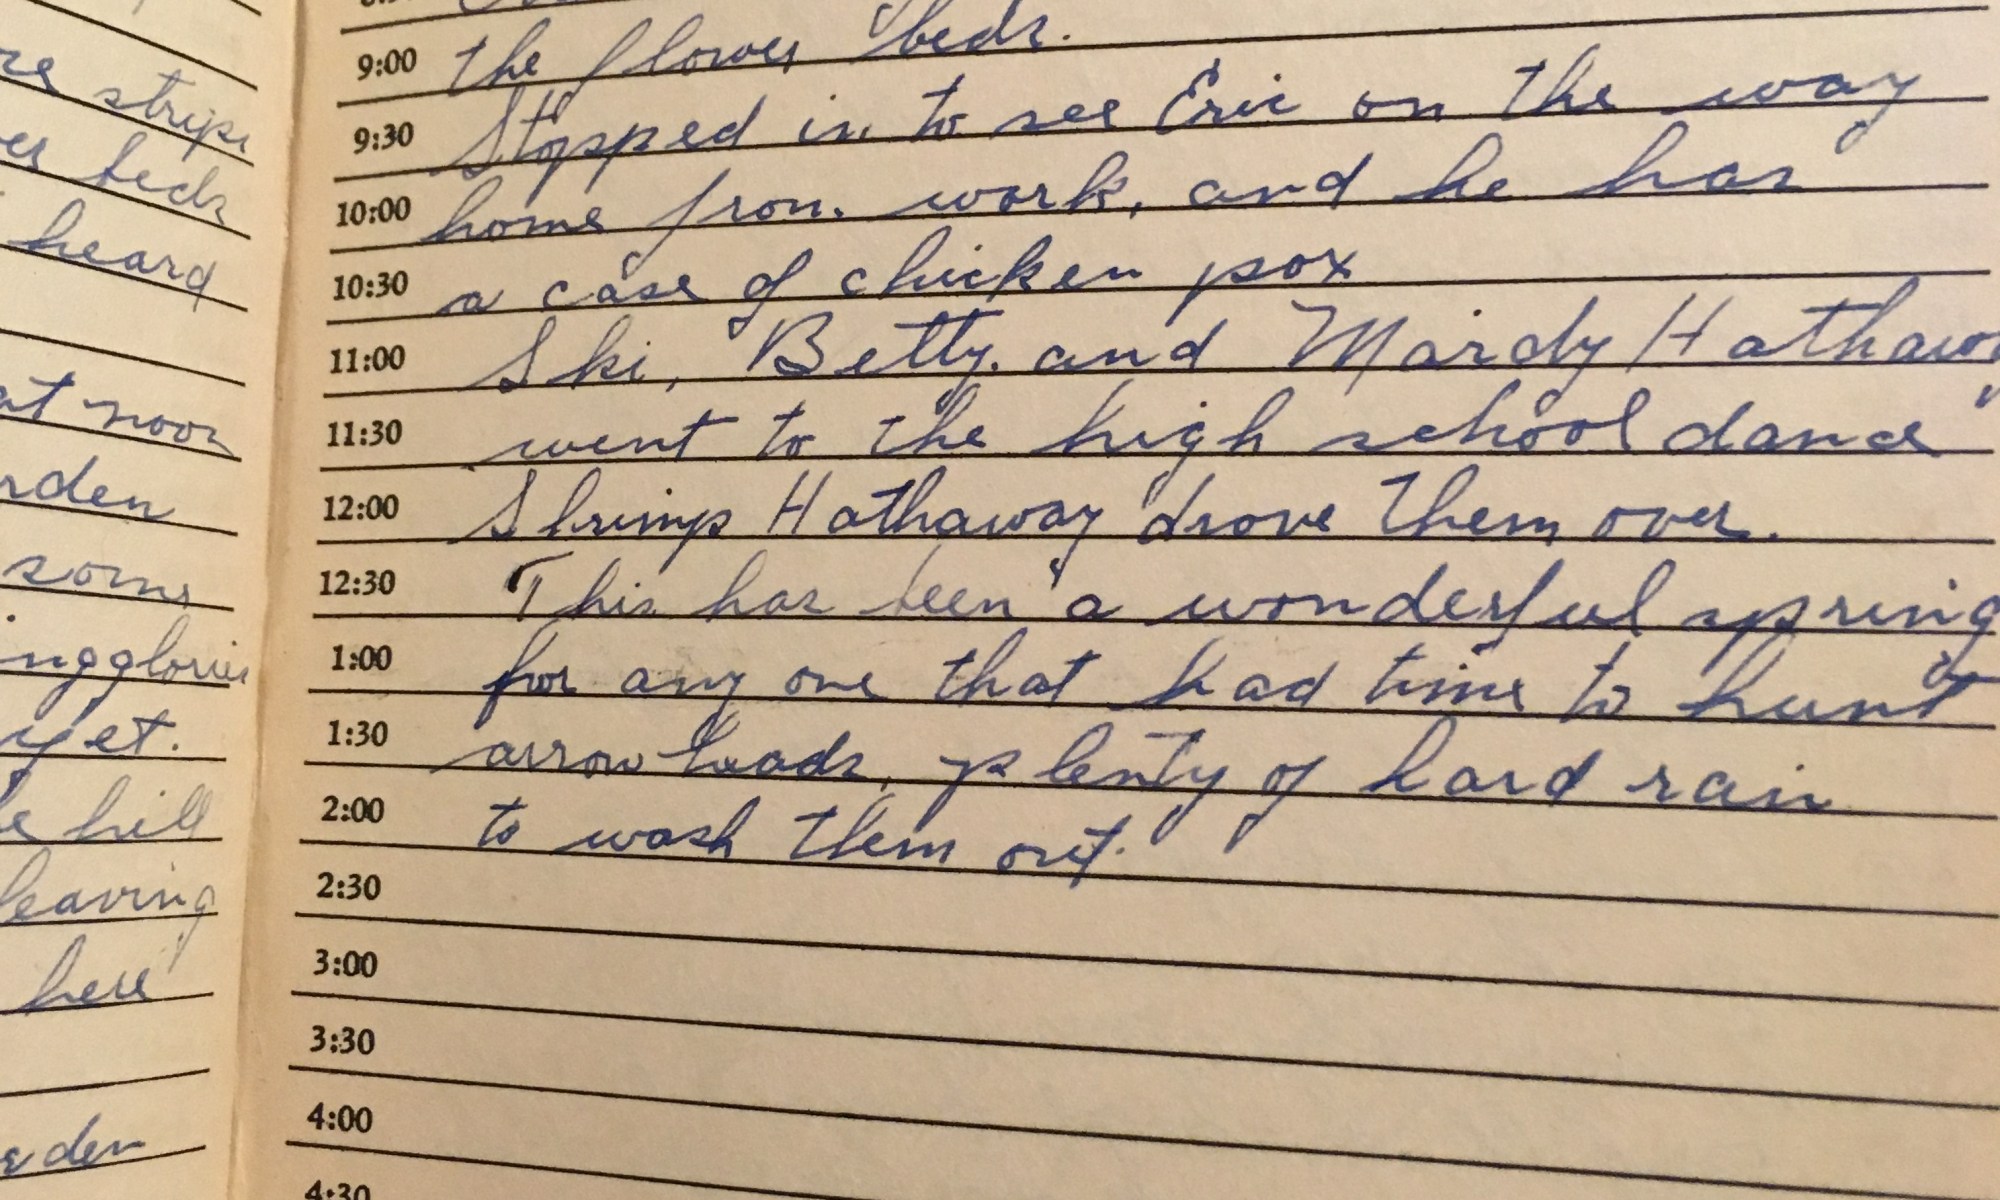 re strips
er beds
heard
at noon
rden
some
ing glories
yet.
e hill
leaving
here
eden
9:00 the flower beds.
9:30 Stopped in to see Eric on the way
10:00 home from work, and he has
10:30 a case of chicken pox
11:00 Ski, Betty, and Mardy Hathaway
11:30 went to the high school dance
12:00 Shrimp Hathaway drove them over.
12:30 This has been a wonderful spring
1:00 for any one that had time to hunt
1:30 arrow heads, plenty of hard rain
2:00 to wash them out.
2:30
3:00
3:30
4:00
4:30